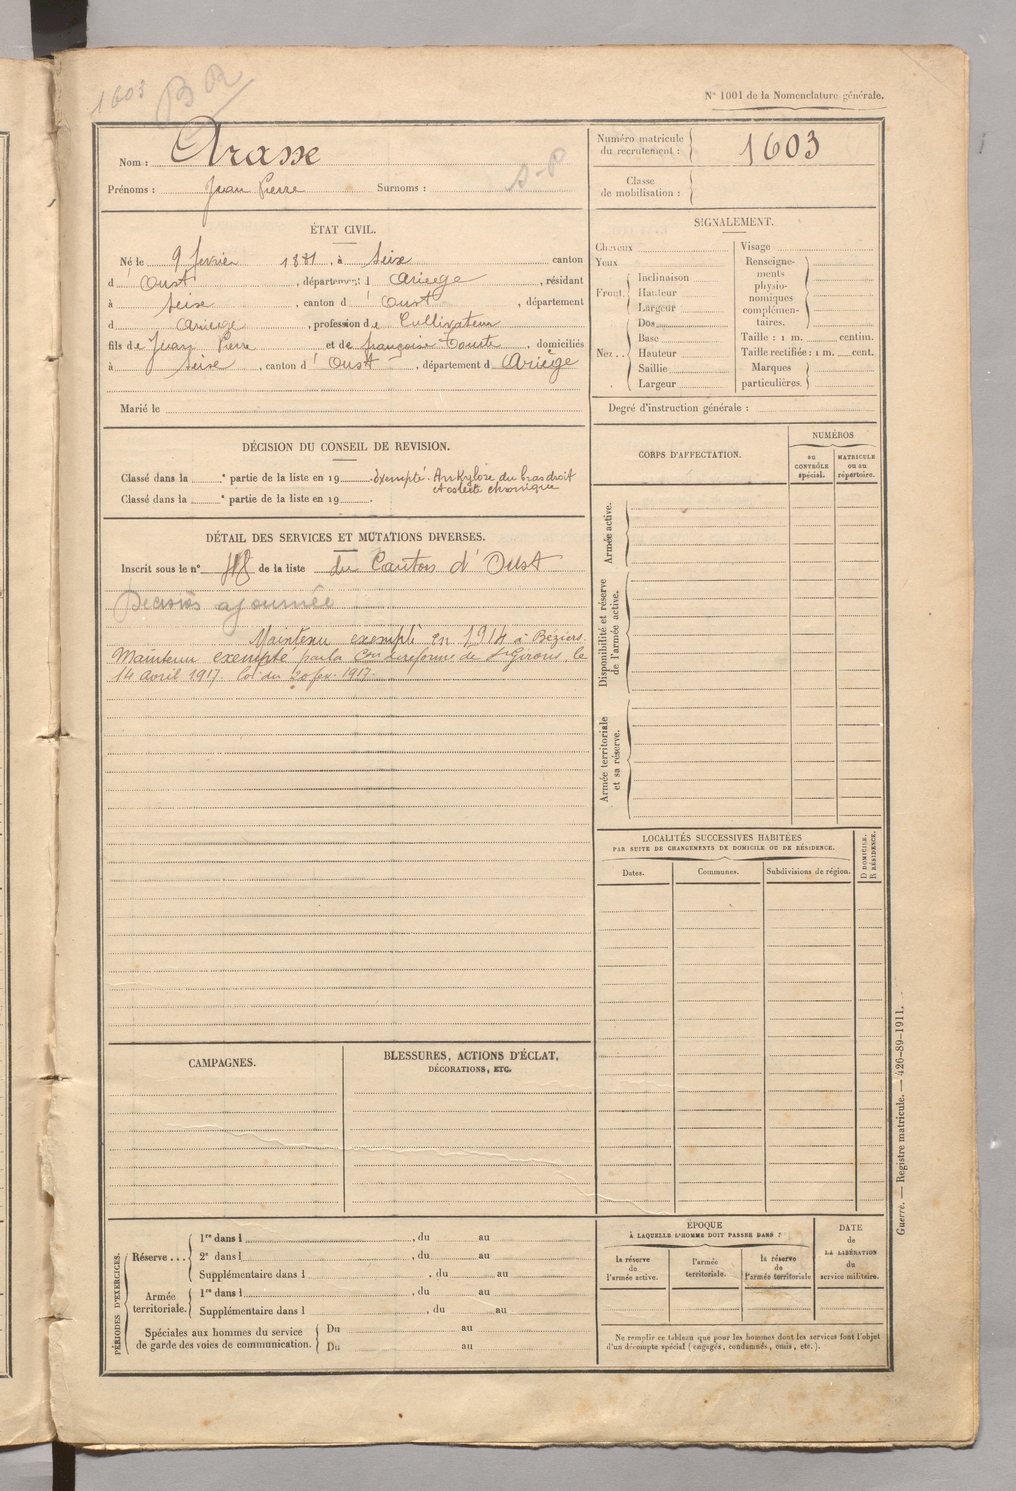 1603 BR
N° 1001 de la Nomenclature générale.
Nom : Arasse
Prénoms : Jean Pierre Surnoms : A-P
Numéro matricule du recrutement : 1603
Classe de mobilisation :
ÉTAT CIVIL.
Né le 9 février 1881, à Seix canton
d'Oust, département d Ariège, résidant
à Seix, canton d'Oust, département
d Ariège, profession de Cultivateur
fils de Jean Pierre et de françoise, domiciliés
à Seix, canton d'Oust, département d Ariège
Marié le
SIGNALEMENT.
Cheveux
Yeux
Front. Inclinaison
Hauteur
Largeur
Nez. Dos
Base
Hauteur
Saillie
Largeur
Visage
Renseigne-
ments
physio-
nomiques
complémen-
taires.
Taille : 1 m. centim.
Taille rectifiée : 1 m. cent.
Marques
particulières.
Degré d'instruction générale :
DÉCISION DU CONSEIL DE REVISION.
Classé dans la e partie de la liste en 19 Exempté. Ankylose du bras droit
et ostéite chronique
Classé dans la e partie de la liste en 19 .
DÉTAIL DES SERVICES ET MUTATIONS DIVERSES.
Inscrit sous le n° de la liste du Canton d'Oust
Décision ajournée
Maintenu exempté en 1914 à Béziers.
Maintenu exempté par la Con de réforme de St Girons, le
14 avril 1917. loi du 20 fév. 1917.
CORPS D'AFFECTATION.
NUMÉROS
au CONTRÔLE spécial.
MATRICULE ou au répertoire.
Armée active.
Disponibilité et réserve de l'armée active.
Armée territoriale et sa réserve.
LOCALITÉS SUCCESSIVES HABITÉES
PAR SUITE DE CHANGEMENTS DE DOMICILE OU DE RÉSIDENCE.
D DOMICILE.
R RÉSIDENCE.
Dates.
Communes.
Subdivisions de région.
CAMPAGNES.
BLESSURES, ACTIONS D'ÉCLAT,
DÉCORATIONS, ETC.
PÉRIODES D'EXERCICES.
Réserve ... 1re dans l , du au
2e dans l , du au
Supplémentaire dans l , du au
Armée territoriale. 1re dans l , du au
Supplémentaire dans l , du au
Spéciales aux hommes du service
de garde des voies de communication.
Du au
Du au
ÉPOQUE
À LAQUELLE L'HOMME DOIT PASSER DANS :
la réserve de l'armée active.
l'armée territoriale.
la réserve de l'armée territoriale
DATE
de
LA LIBÉRATION
du
service militaire.
Ne remplir ce tableau que pour les hommes dont les services font l'objet
d'un décompte spécial (engagés, condamnés, omis, etc.).
Guerre. — Registre matricule. — 426-89-1911.